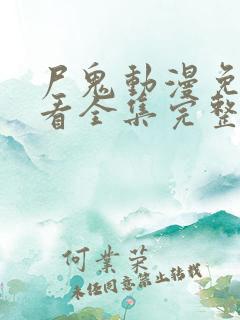 尸鬼動漫免
看全集完整
何業榮
未经同意禁止转载